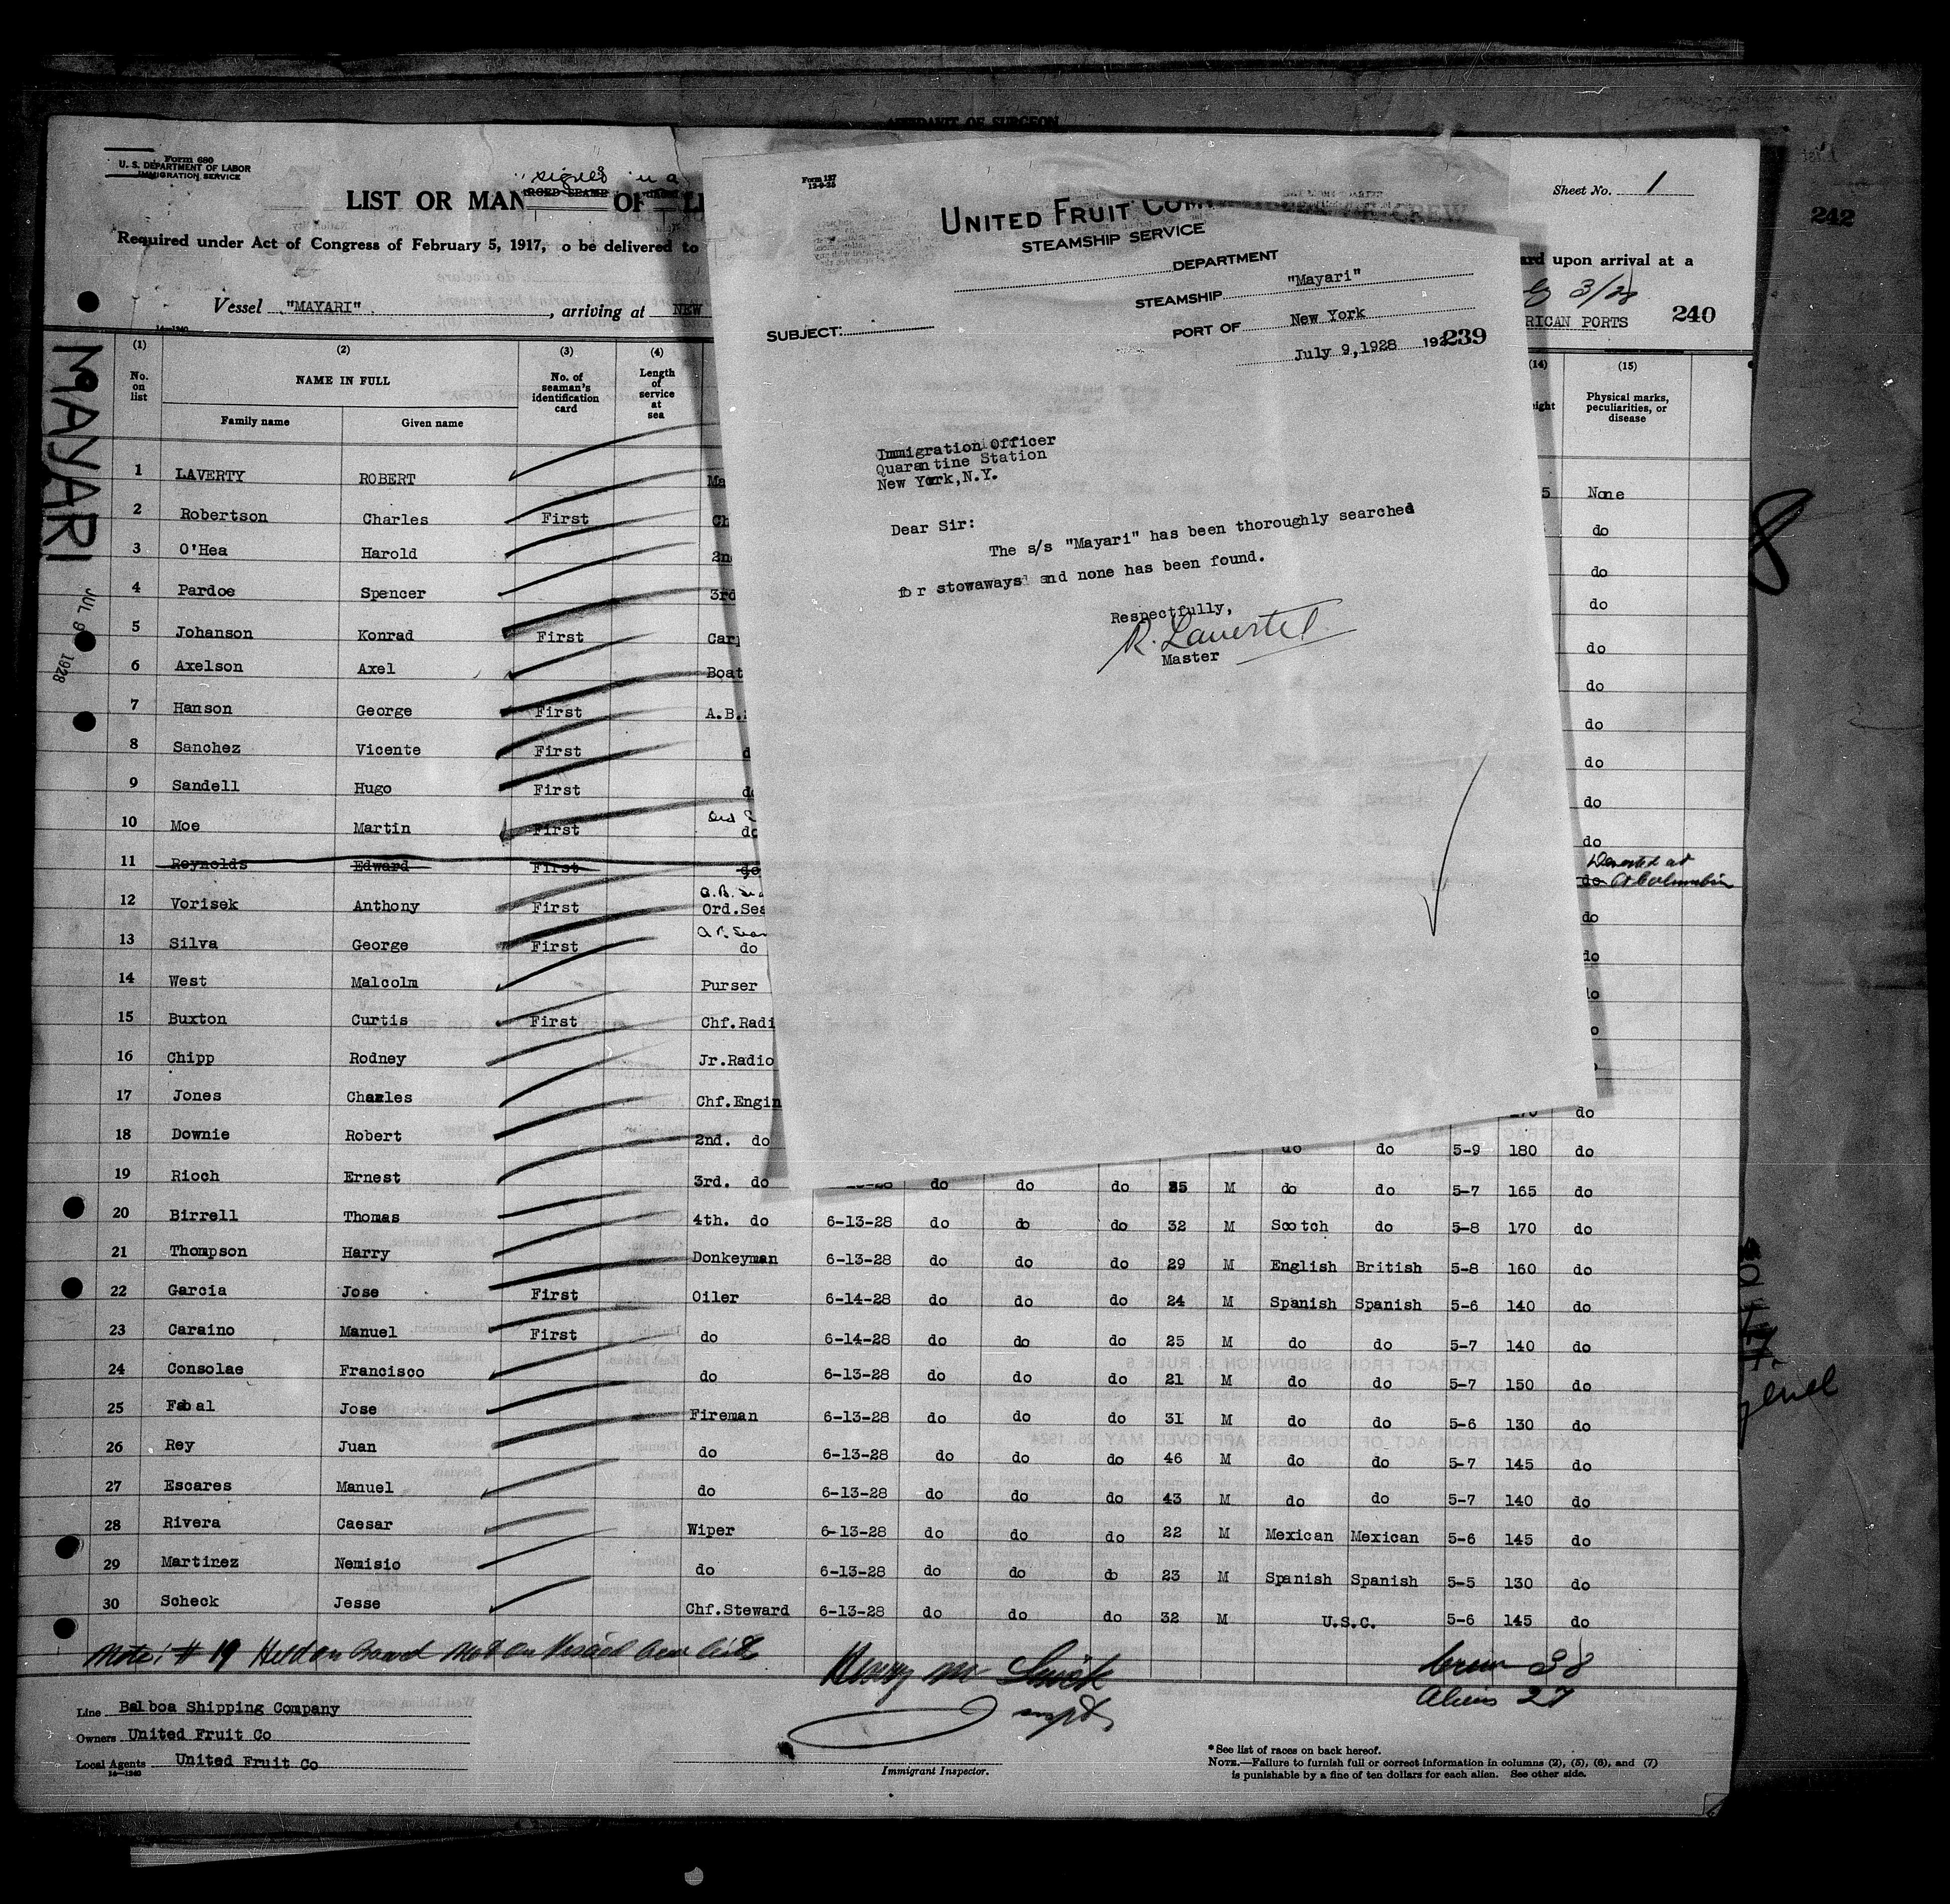 AFFIDAVIT OF SURGEON
Form 680
U. S. DEPARTMENT OF LABOR
IMMIGRATION SERVICE
signed
LIST OR MAN OF
Sheet No. 1
242
Required under Act of Congress of February 5, 1917, o be delivered to
ard upon arrival at a
3/28
Vessel "MAYARI", arriving at NEW
RICAN PORTS 240
14-1240
MAYARI
JUL 9 1928
Form 127
UNITED FRUIT COM
STEAMSHIP SERVICE
DEPARTMENT
STEAMSHIP "Mayari"
SUBJECT:
PORT OF New York
July 9,1928 192 239
Immigration Officer
Quarantine Station
New York,N.Y.
Dear Sir:
The s/s "Mayari" has been thoroughly searched
for stowaways and none has been found.
Respectfully,
Master
(1) (2) (3) (4) (14) (15)
No. on list
NAME IN FULL
Family name Given name
No. of seaman's identification card
Length of service at sea
eight
Physical marks, peculiarities, or disease
1 LAVERTY ROBERT Ma 5 None
2 Robertson Charles First Ch do
3 O'Hea Harold 2nd do
4 Pardoe Spencer 3rd do
5 Johanson Konrad First Carp do
6 Axelson Axel Boat do
7 Hanson George First A.B. do
8 Sanchez Vicente First do
9 Sandell Hugo First do do
10 Moe Martin First do do
11 Reynolds Edward First do do Deserted at
12 Vorisek Anthony First Ord.Sea do
13 Silva George First do do
14 West Malcolm Purser do
15 Buxton Curtis First Chf.Radi
16 Chipp Rodney Jr.Radio
17 Jones Charles Chf.Engin do
18 Downie Robert 2nd. do do do 5-9 180 do
19 Rioch Ernest 3rd. do do do do 35 M do do 5-7 165 do
20 Birrell Thomas 4th. do 6-13-28 do do do 32 M Scotch do 5-8 170 do
21 Thompson Harry Donkeyman 6-13-28 do do do 29 M English British 5-8 160 do
22 Garcia Jose First Oiler 6-14-28 do do do 24 M Spanish Spanish 5-6 140 do
23 Caraino Manuel First do 6-14-28 do do do 25 M do do 5-7 140 do
24 Consolae Francisco do 6-13-28 do do do 21 M do do 5-7 150 do
25 Fabal Jose Fireman 6-13-28 do do do 31 M do do 5-6 130 do
26 Rey Juan do 6-13-28 do do do 46 M do do 5-7 145 do
27 Escares Manuel do 6-13-28 do do do 43 M do do 5-7 140 do
28 Rivera Caesar Wiper 6-13-28 do do do 22 M Mexican Mexican 5-6 145 do
29 Martinez Nemisio do 6-13-28 do do do 23 M Spanish Spanish 5-5 130 do
30 Scheck Jesse Chf.Steward 6-13-28 do do do 32 M U.S.C. 5-6 145 do
Note: # 19 Held on Board not on
Crew 38
Aliens 27
Line Balboa Shipping Company
Owners United Fruit Co
Local Agents United Fruit Co
14-1240
Immigrant Inspector.
*See list of races on back hereof.
NOTE.—Failure to furnish full or correct information in columns (2), (5), (6), and (7)
is punishable by a fine of ten dollars for each alien. See other side.